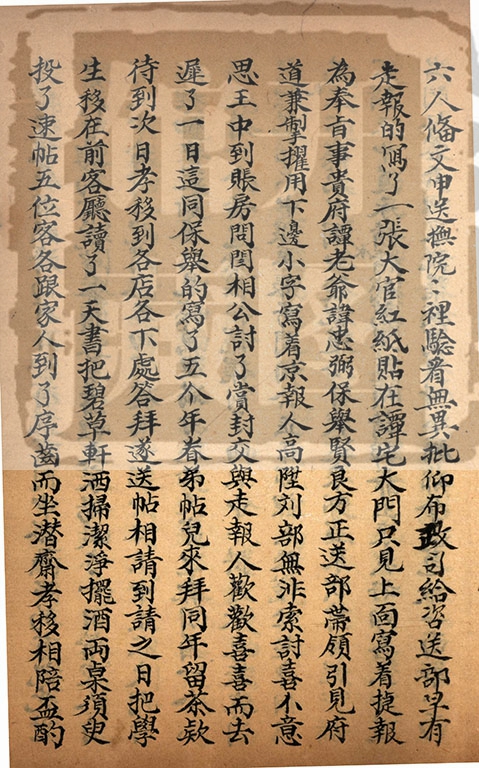 六人備文申送撫院〻裡驗看無異批仰布政司給咨送部早有
走報的寫了一張大官紅紙貼在譚宅大門只見上面寫着捷報
為奉旨事貴府譚老爺諱忠弼保舉賢良方正送部帶領引見府
道兼掣擢用下邊小字寫着京報人高陞刘部無非索討喜小意
思王中到賬房問閻相公討了賞封交與走報人歡歡喜喜而去
遲了一日這同保舉的寫了五个年眷弟帖兒來拜同年留茶欵
待到次日孝移到各店各下處答拜遂送帖相請到請之日把學
生移在前客廳讀了一天書把碧草軒洒掃潔淨擺酒両桌須臾
投了速帖五位客各跟家人到了序齒而坐潜齋孝移相陪盃酌